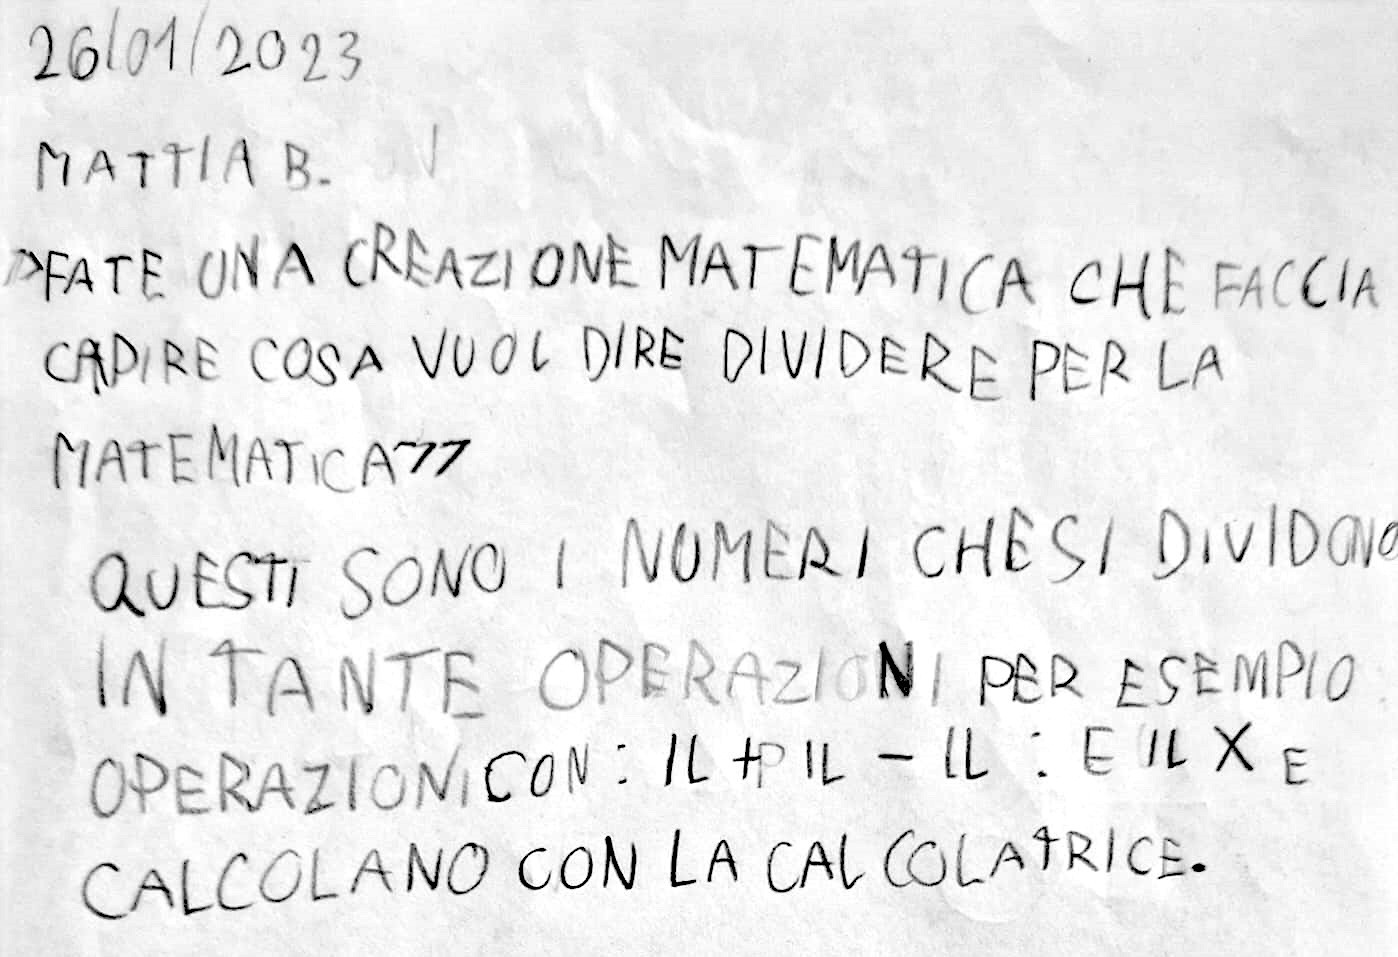 26/01/2023
MATTIA B.
"FATE UNA CREAZIONE MATEMATICA CHE FACCIA
CAPIRE COSA VUOL DIRE DIVIDERE PER LA
MATEMATICA"
QUESTI SONO I NUMERI CHE SI DIVIDONO
IN TANTE OPERAZIONI PER ESEMPIO
OPERAZIONI CON: IL + IL - IL : E IL X E
CALCOLANO CON LA CALCOLATRICE.